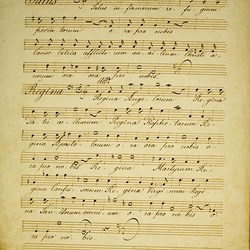 Salus
Salus in firmorum re fu gium
pecca torum o ra pro nobis
Conso latrix afflicto rum au xi lium Christi a
norum ora ora pro nobis.
Regina
Regina Ange lorum Regina
Pa tri ar charum Regina Prophe tarum Re
gina Aposto lorum o ra pro nobis o
ra pro no bis Re gina Martyrum Re
gina Confes sorum Re gina Virgi num Regi
na Sanctorum omni um o ra pro nobis o
ra pro no bis